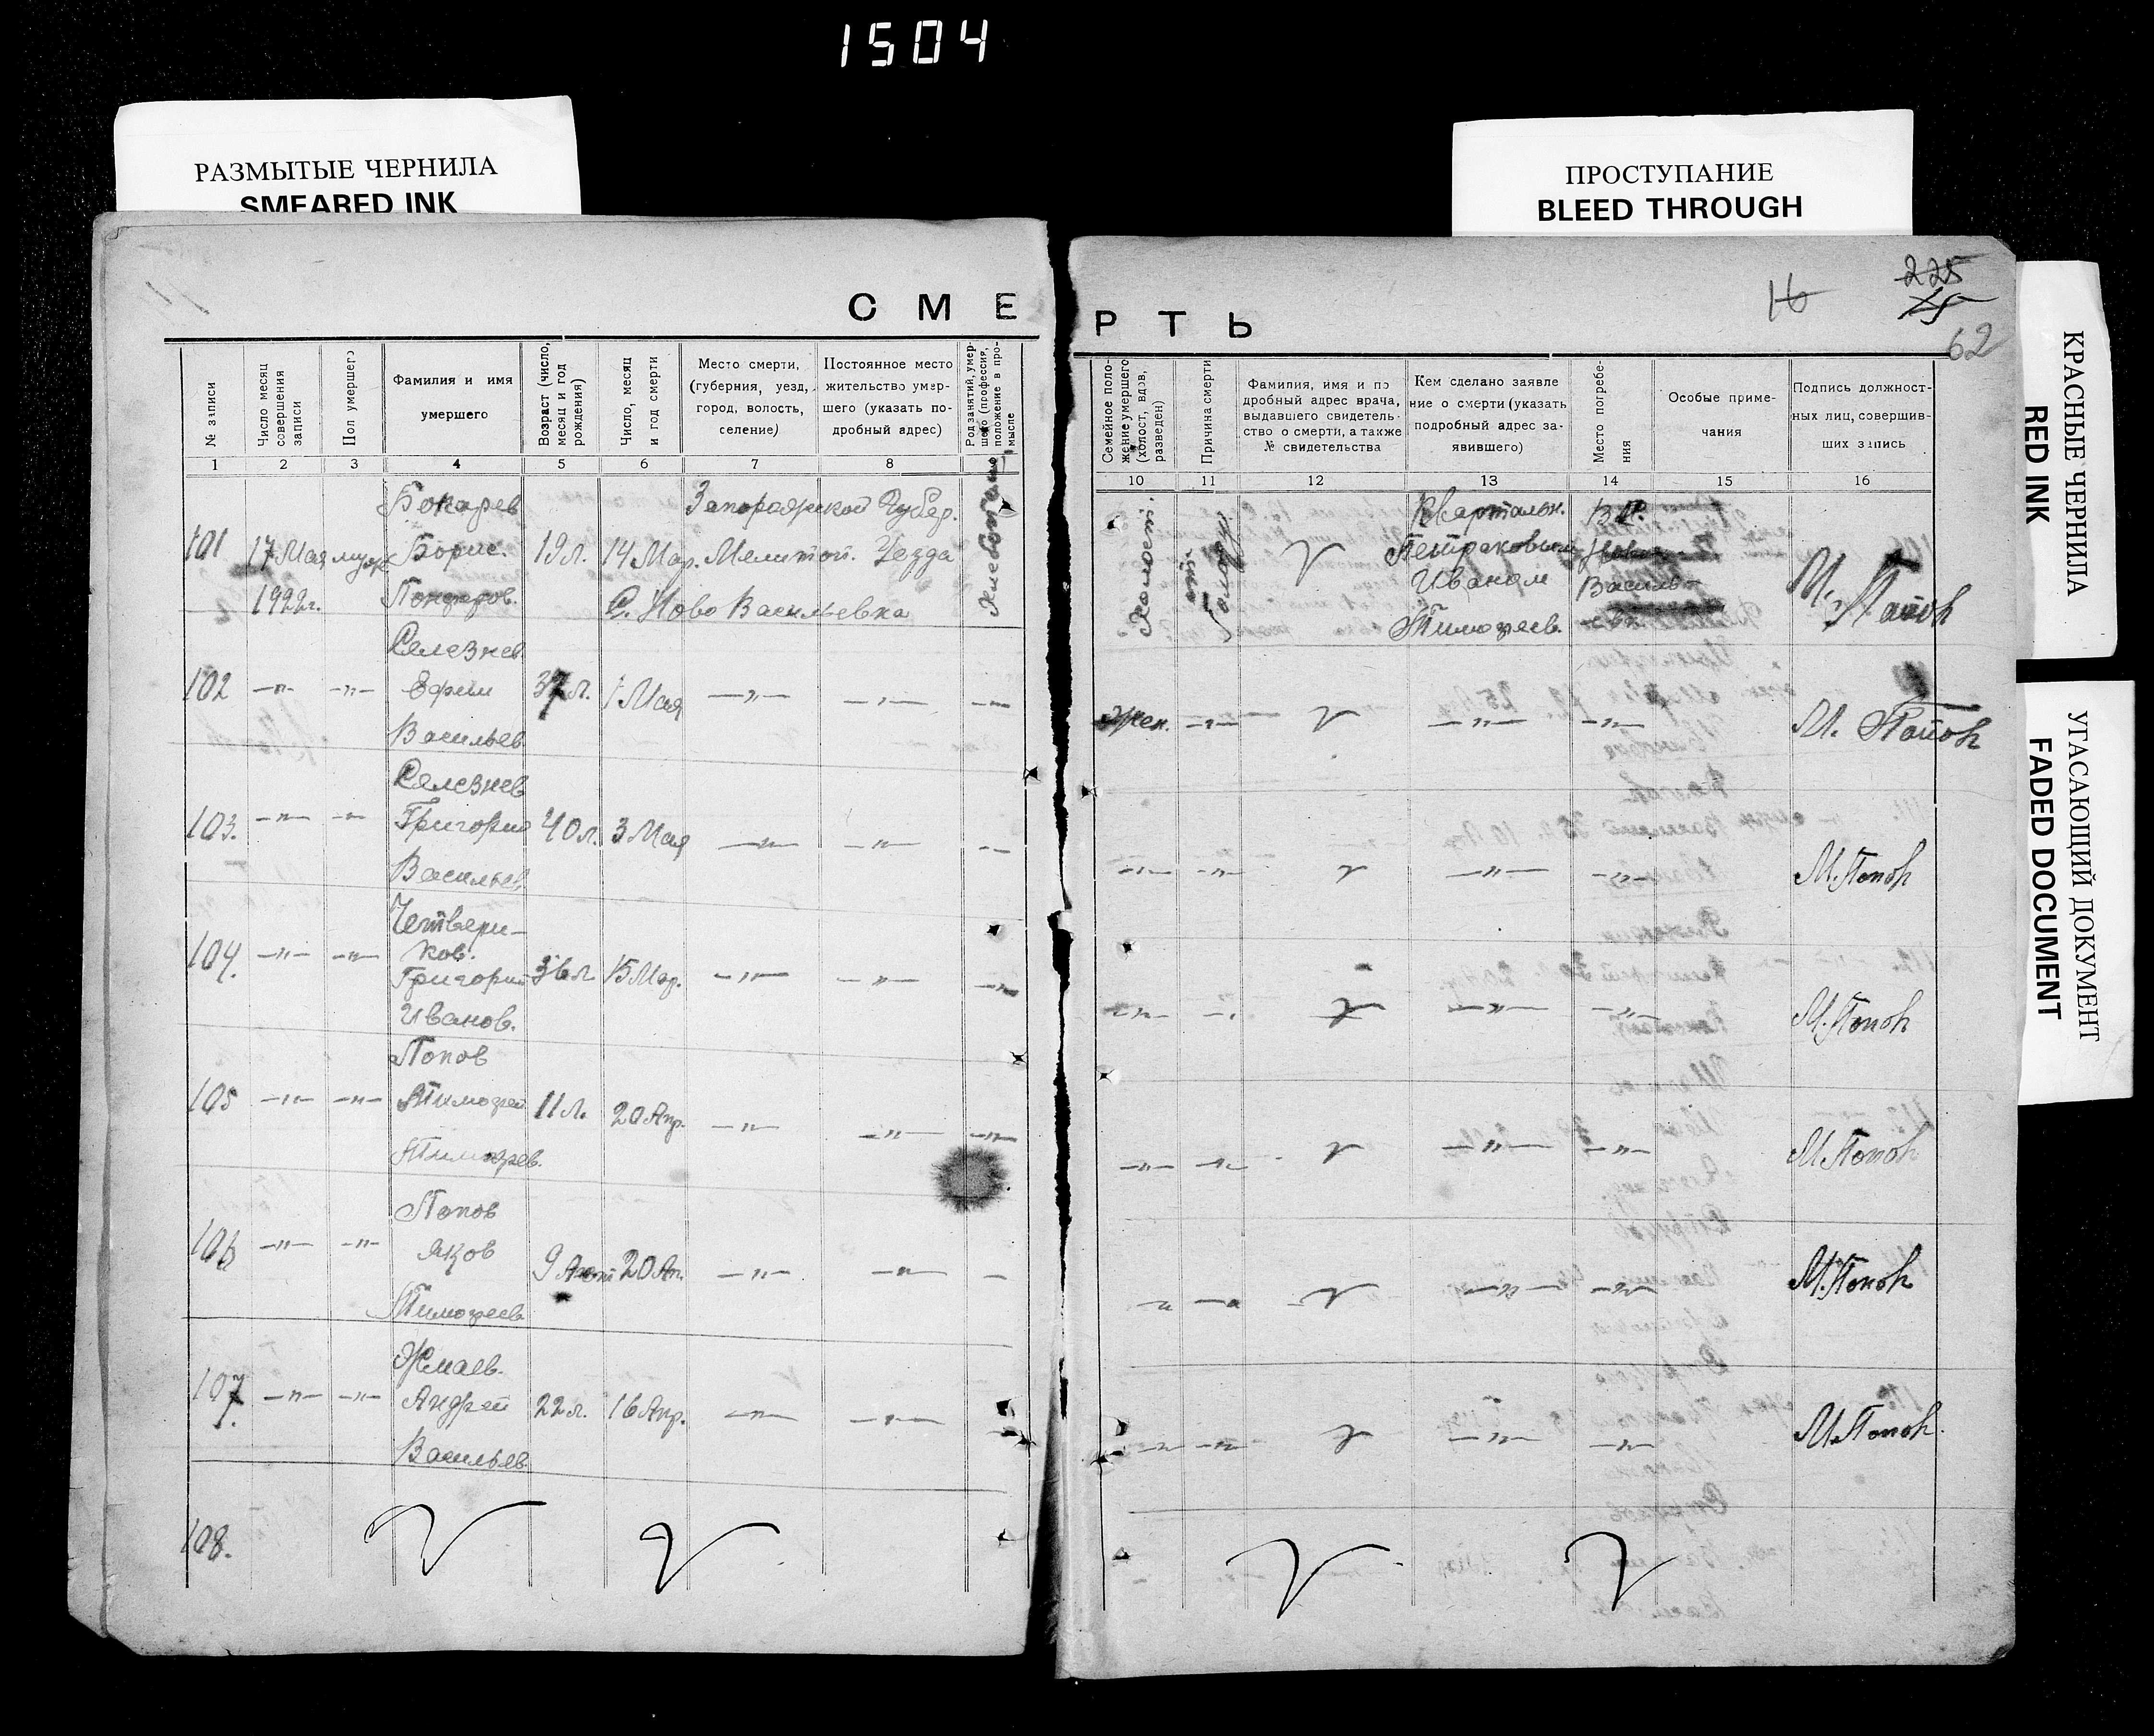 1504
РАЗМЫТЫЕ ЧЕРНИЛА
SMEARED INK
ПРОСТУПАНИЕ
BLEED THROUGH
КРАСНЫЕ ЧЕРНИЛА
RED INK
УГАСАЮЩИЙ ДОКУМЕНТ
FADED DOCUMENT
16
225
15
62
СМЕРТЬ
№ записи
Число месяц совершения записи
Пол умершего
Фамилия и имя умершего
Возраст (число, месяц и год рождения)
Число, месяц и год смерти
Место смерти, (губерния, уезд, город, волость, селение)
Постоянное место жительство умершего (указать подробный адрес)
Род занятий, умершего (профессия, положение в промысле
Семейное положение умершего (холост, вдов, разведен)
Причина смерти
Фамилия, имя и подробный адрес врача, выдавшего свидетельство о смерти, а также № свидетельства
Кем сделано заявление о смерти (указать подробный адрес заявившего)
Место погребения
Особые примечания
Подпись должностных лиц, совершивших запись
1 2 3 4 5 6 7 8
10 11 12 13 14 15 16
Бокарев Запорожской Губер. Хлебопашец
101 17 Мая муж. Борис. 19 л. 14 Мар. Мелитоп. Уезда
1922 г. С. Ново Васильевка
Холост.
Голода
Квартальн.
Петраковым
Иваном
Тимофеев.
Василь-
евк.
М. Попов
Селезнев
102 —〃— —〃— Ефим 37 л. 1 Мая —〃— —〃— —〃—
Васильев
Жен. —〃— —〃— —〃— М. Попов
Селезнев
103. —〃— —〃— Григорий 40 л. 3 Мая —〃— —〃— —〃—
Васильев
—〃— —〃— —〃— —〃— М. Попов
Четвери-
ков.
104. —〃— —〃— Григорий 36 л. 15 Мар. —〃— —〃— —〃—
Иванов.
—〃— —〃— —〃— —〃— М. Попов
Попов
105 —〃— —〃— Тимофей 11 л. 20 Апр. —〃— —〃— —〃—
Тимофеев.
—〃— —〃— —〃— —〃— М. Попов
Попов
106 —〃— —〃— Яков 9 лет 20 Ап. —〃— —〃— —
Тимофеев
—〃— —〃— —〃— —〃— М. Попов
Жмаев.
107 —〃— —〃— Андрей 22 л. 16 Апр. —〃— —〃—
Васильев
—〃— —〃— —〃— —〃— М. Попов.
108.